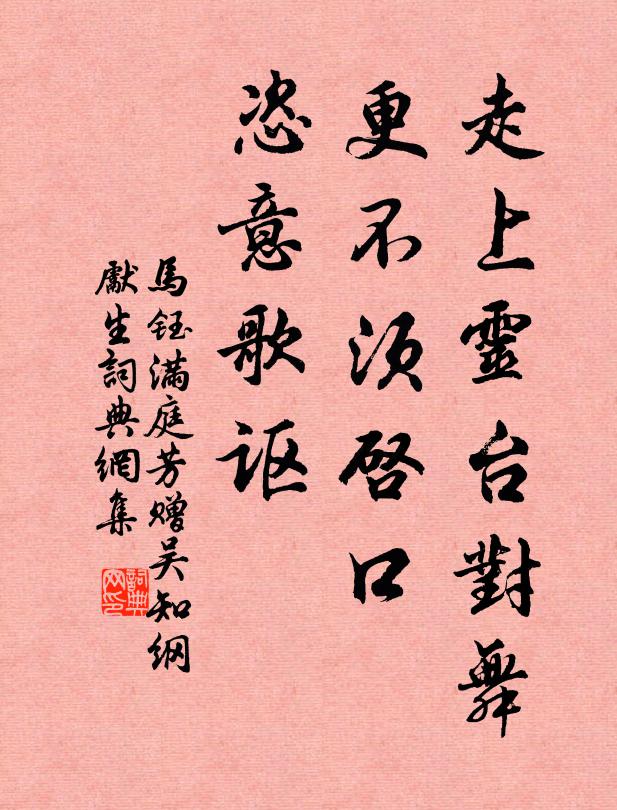 走上靈台對舞
更不須啓口
恣意歌讴
馬鈺满庭芳赠吴知纲
獻生詞典網集
詞典
网印